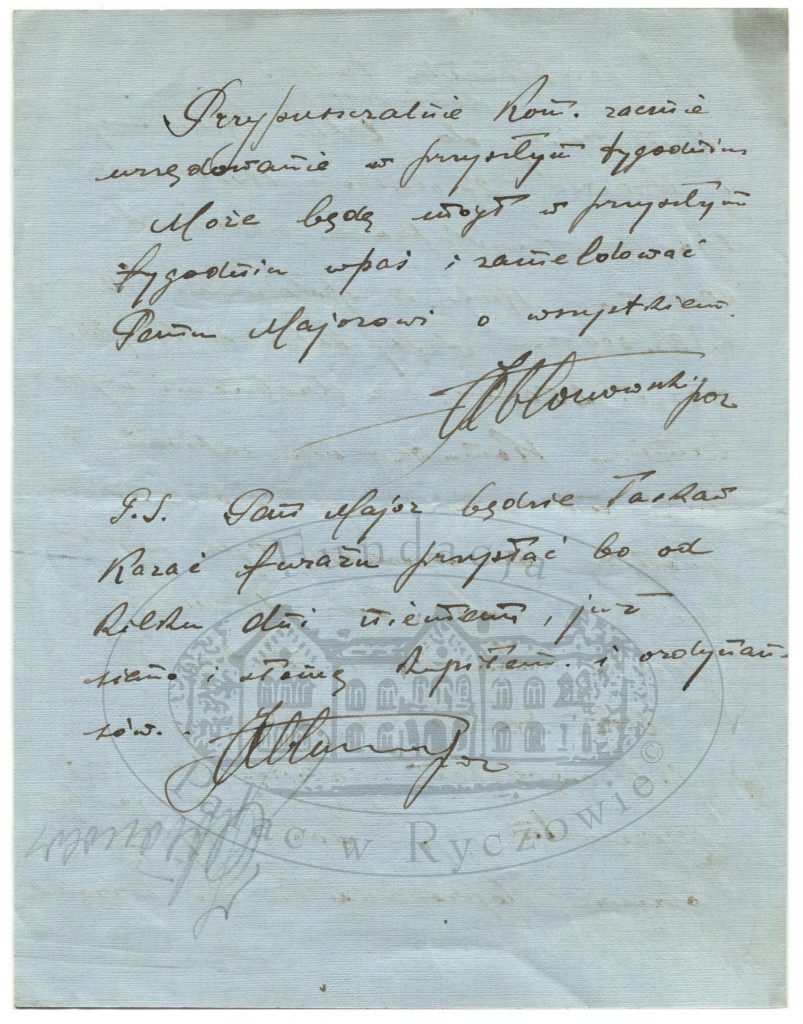 Przypuszczalnie Kom. zacznie
urzędowanie w przyszłym tygodniu
Może będę mógł w przyszłym
tygodniu wpaś i zameldować
Panu Majorowi o wszystkiem.
por
P.S. Pan Major będzie łaskaw
Kazać furażu przysłać bo od
kilku dni niemam, już
siano i słomę kupiłem. i ordynan
sów.
por
Fundacja
Pałac w Ryczowie ©